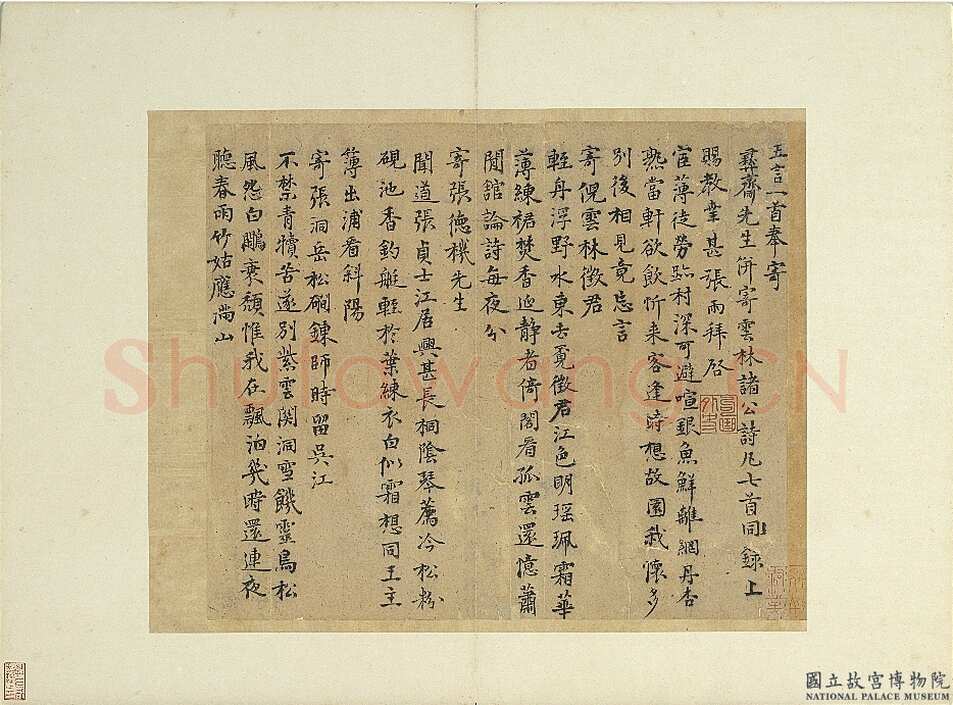 五言一首奉寄
彛齋先生併寄雲林諸公詩凡七首同錄上
賜教業甚張雨拜啓
宦薄徒勞點村深可避喧銀魚鮮離網丹杏
熟當軒欲飲忻來客逢時想故園我懷多
別後相見竟忘言
寄倪雲林徵君
輕丹浮野水東去覓徵君江色明瑶珮霜華
薄練裙焚香延靜者倚閣看孤雲還憶蕭
閒舘論詩每夜分
寄張德機先生
聞道張貞士江居興甚長桐陰琴薦冷松粉
硯池香釣艇輕於葉練衣白似霜想同王主
薄出浦看斜陽
寄張洞岳松磵鍊師時留吳江
不禁青犢苦遂別紫雲関洞雪饑靈鳥松
風怨白鷴衰頹惟我在飄泊幾時還連夜
聽春雨竹姑應滿山
ShufaWong.CN
國立故宮博物院
NATIONAL PALACE MUSEUM